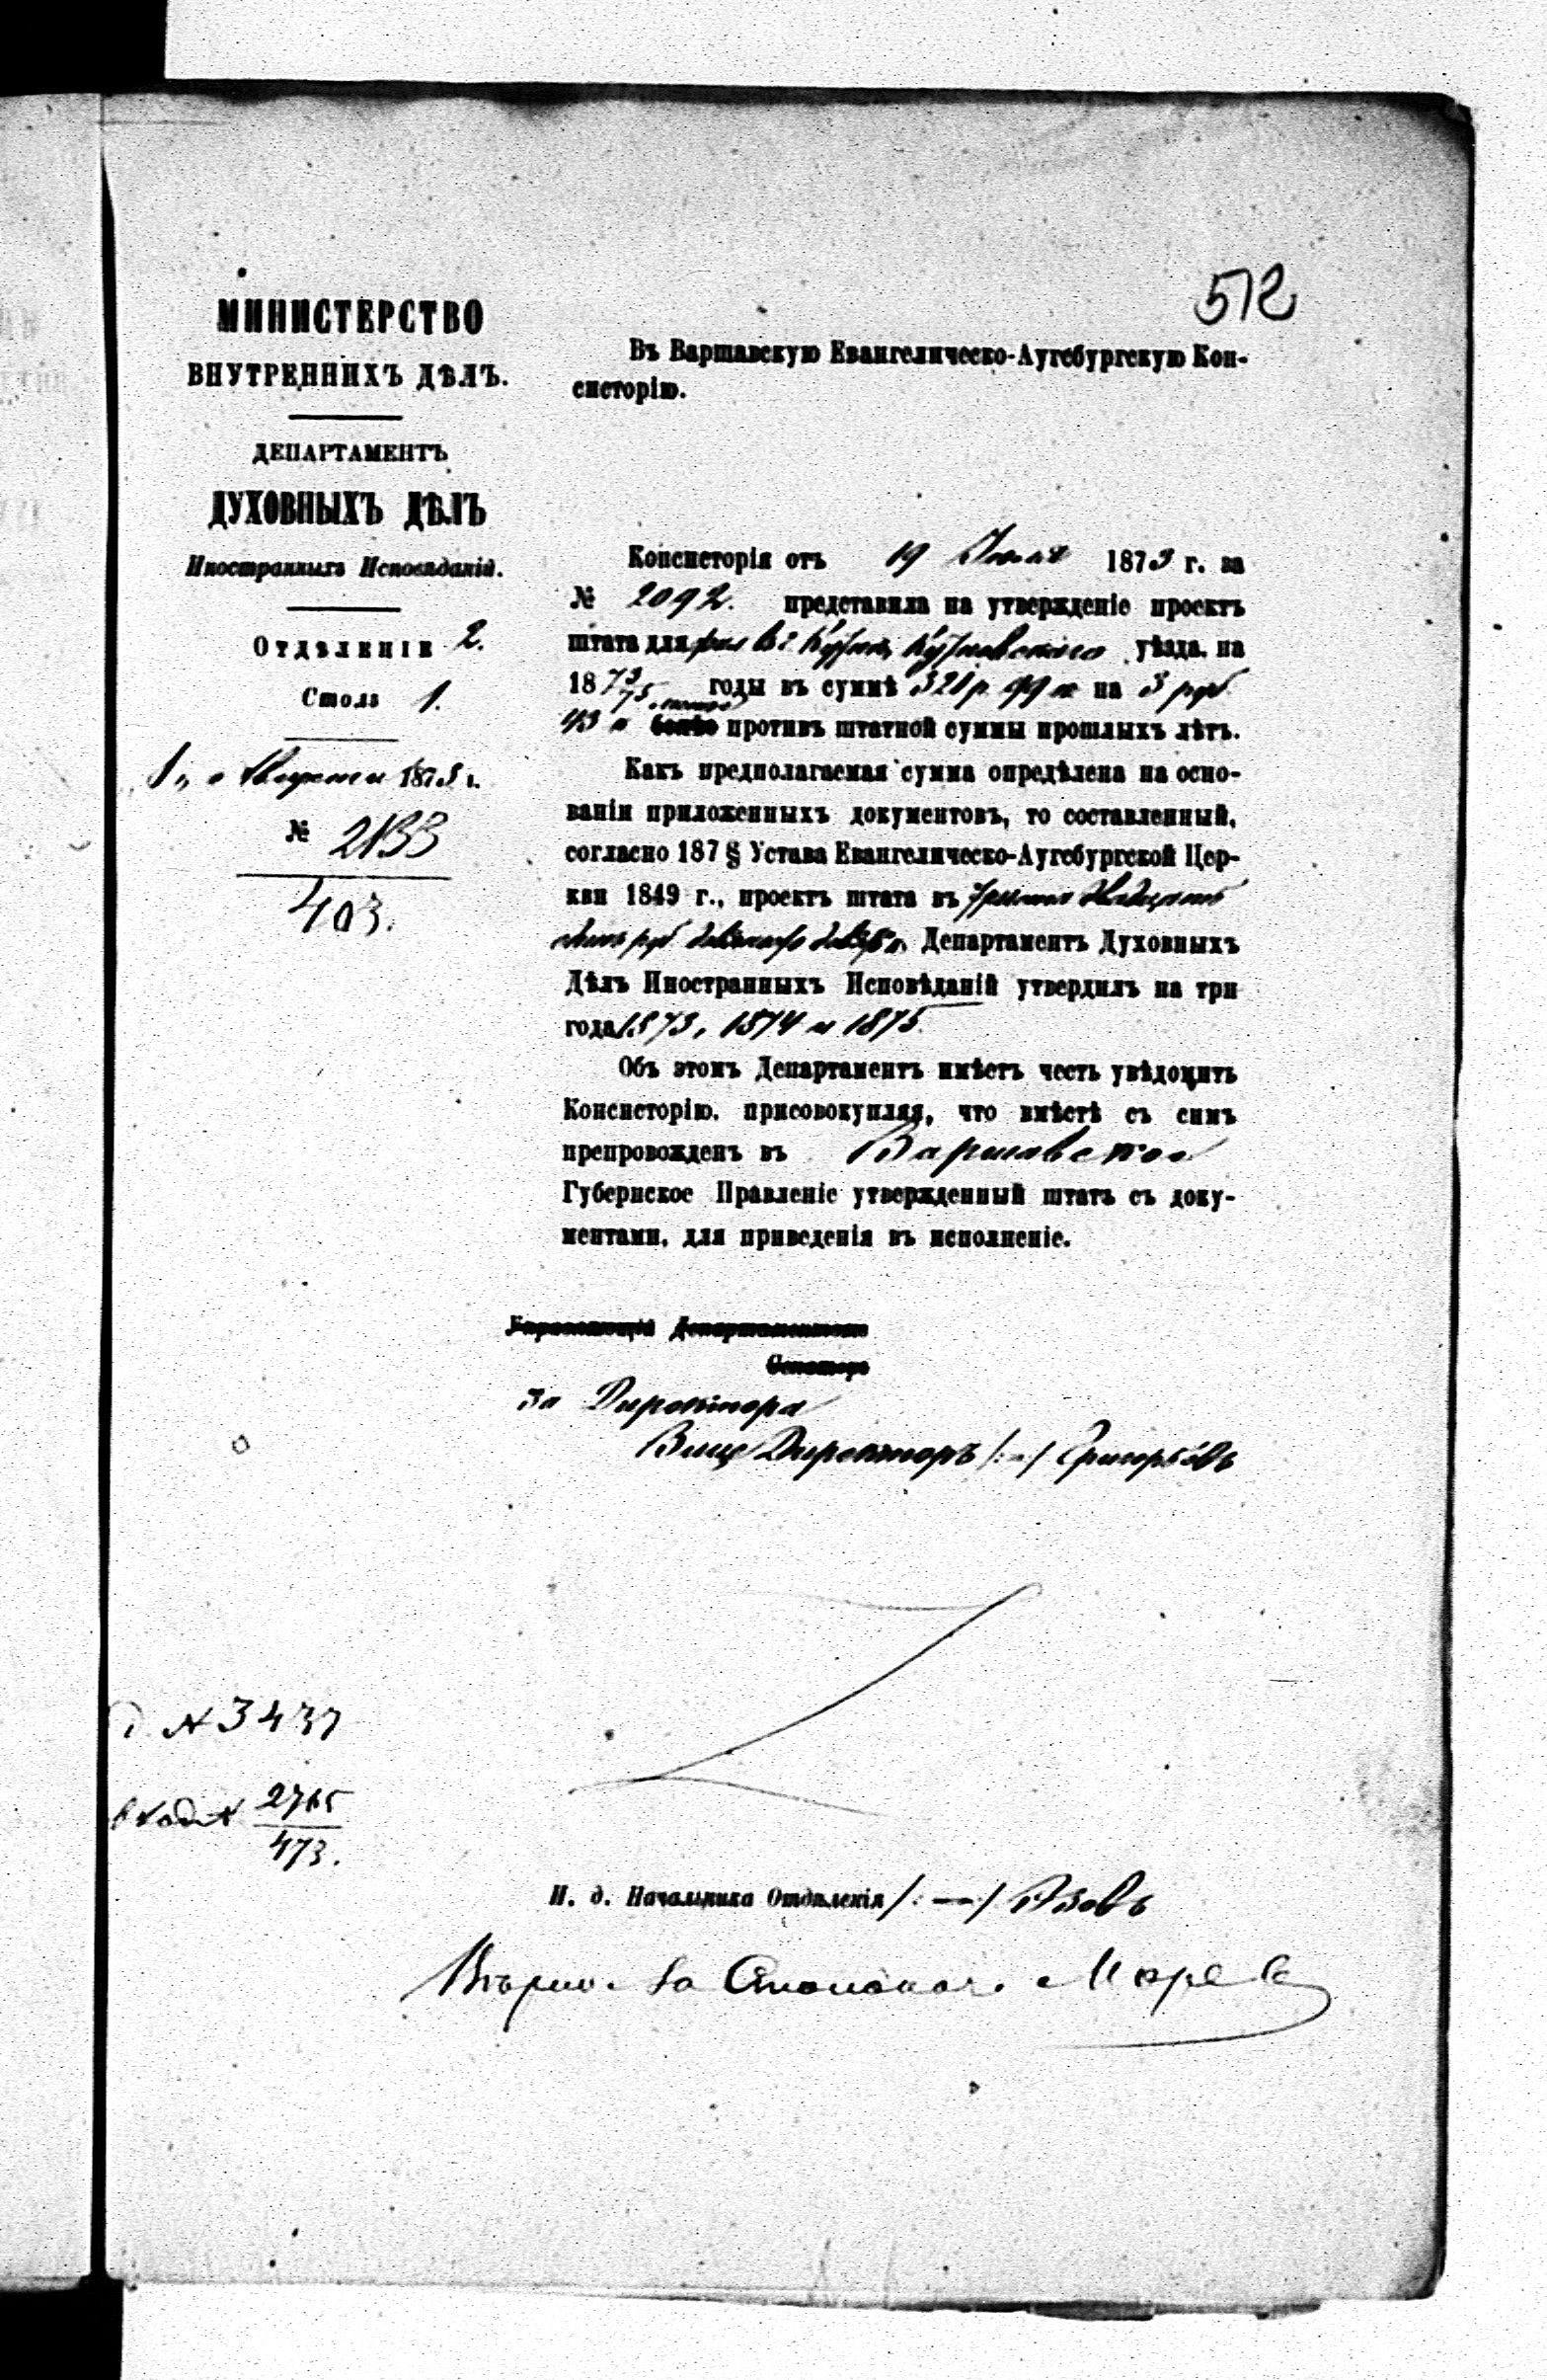 512
МИНИСТЕРСТВО
ВНУТРЕННИХЪ ДѢЛЪ.
ДЕПАРТАМЕНТЪ
ДУХОВНЫХЪ ДѢЛЪ
Иностранныхъ Исповѣданій.
Отдѣленіе 2.
Столъ 1.
1 Августа 1873 г.
№ 2133
403.
Въ Варшавскую Евангелическо-Аугсбургскую Кон-
систорію.
Консисторія отъ 19 Іюля 1873 г. за
№ 2092. представила на утвержденіе проектъ
штата для въ Кутно, Кутновскаго уѣзда, на
1873/75 годы въ суммѣ 321 р. 99 к на 3 руб.
43 к болѣе противъ штатной суммы прошлыхъ лѣтъ.
Какъ предполагаемая сумма опредѣлена на осно-
ваніи приложенныхъ документовъ, то составленный,
согласно 187 § Устава Евангелическо-Аугсбургской Цер-
кви 1849 г., проектъ штата въ триста двадцать
одинъ руб. девяносто девять к. Департаментъ Духовныхъ
Дѣлъ Иностранныхъ Исповѣданій утвердилъ на три
года 1873, 1874 и 1875.
Объ этомъ Департаментъ имѣетъ честь увѣдомить
Консисторію, присовокупляя, что вмѣстѣ съ симъ
препровожденъ въ Варшавское
Губернское Правленіе утвержденный штатъ съ доку-
ментами, для приведенія въ исполненіе.
Управляющій Департаментомъ
Сенаторъ
За Директора
Вице Директоръ /:-/ Григорьевъ
№ 3437
вход № 2765
473.
И. д. Начальника Отдѣленія /:—/
Вѣрно. За Столонач.